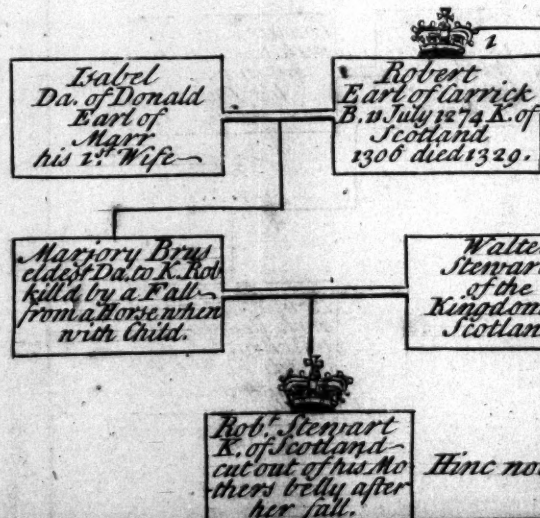 1
Isabel
Da. of Donald
Earl of
Marr
his 1.st Wife
Robert
Earl of Carrick
B. 11 July 1274 K. of
Scotland
1306 died 1329.
Marjory Brus
eldest Da. to K. Rob
killd by a Fall
from a Horse when
with Child.
Walte
Stewar
of the
Kingdom
Scotlan
Rob.t Stewart
K. of Scotland
cut out of his Mo
thers belly after
her fall.
Hinc no